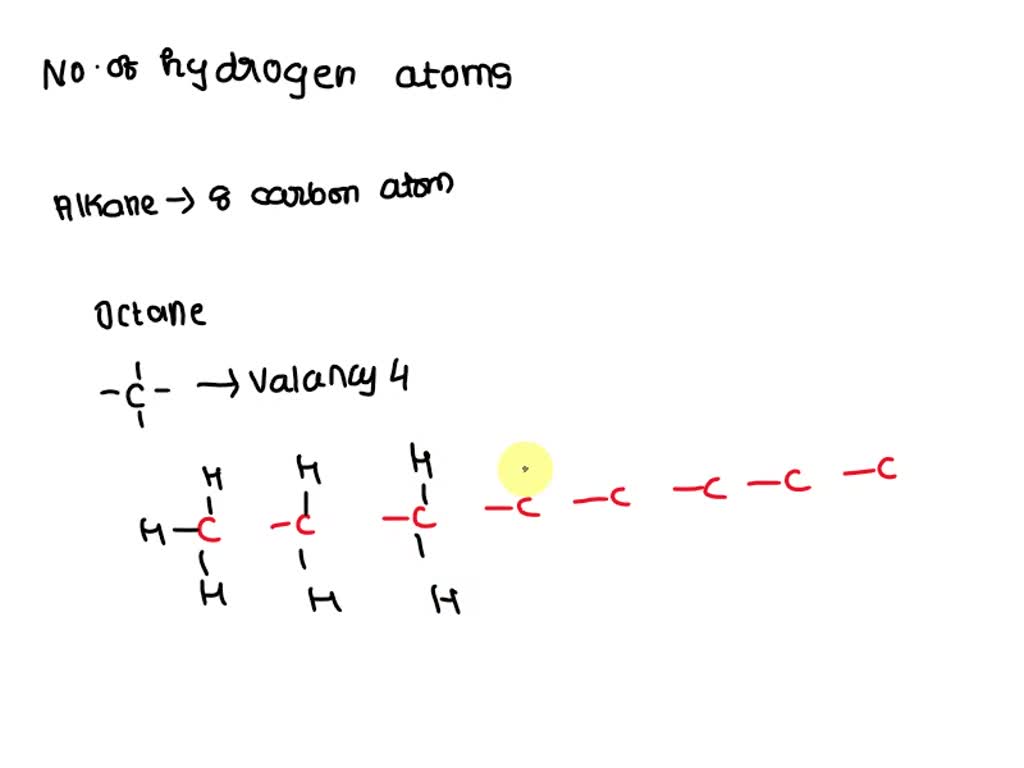 No. of hydrogen atoms
Alkane → 8 carbon atom
Octane
-C- → Valancy 4
H H H
H-C -C -C -C -C -C -C -C
H H H